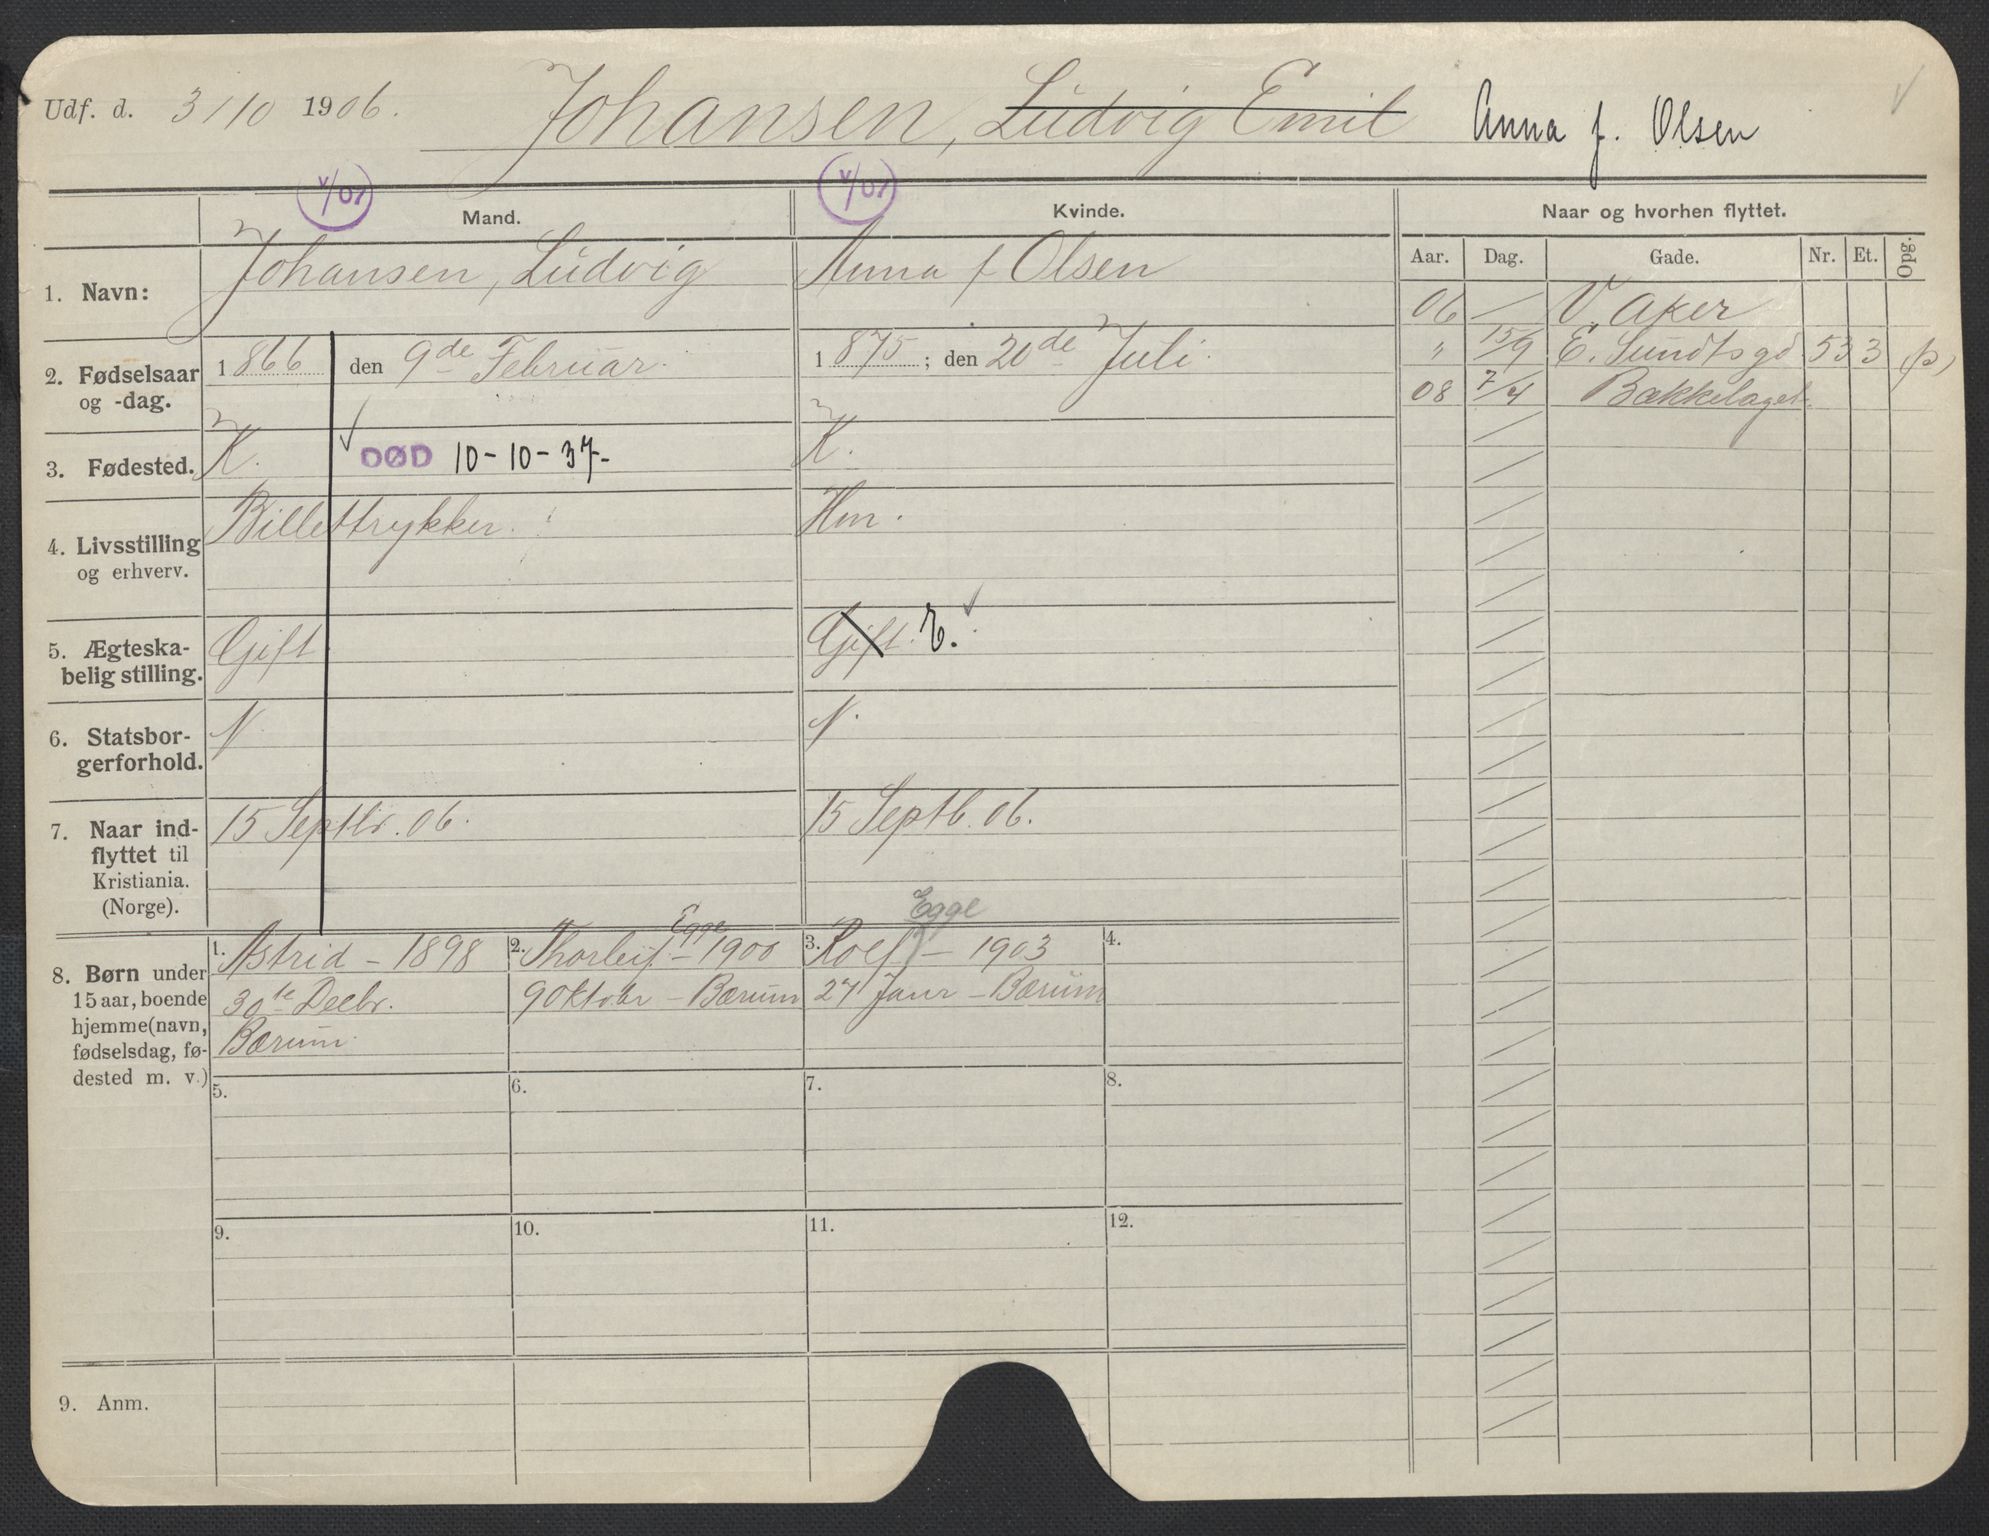 Udf. d. 3/10 1906. Johansen, Ludvig Emil Anna f. Olsen
V/07 V/07
Mand. Kvinde. Naar og hvorhen flyttet.
Aar. Dag. Gade. Nr. Et. Opg.
1. Navn: Johansen, Ludvig Anna f Olsen
06 V. Aker
" 15/9 E. Sundtsgd 53 3 (p)
08 7/4 Bækkelaget
2. Fødselsaar
og -dag. 1866 den 9de Februar. 1875; den 20de Juli.
3. Fødested. K. DØD 10-10-37- K.
4. Livsstilling
og erhverv. Billettrykker. Hm.
5. Ægteska-
belig stilling. Gift Gift. E.
6. Statsbor-
gerforhold. N N.
7. Naar ind-
flyttet til
Kristiania.
(Norge). 15 Septbr. 06. 15 Septb. 06.
8. Børn under
15 aar, boende
hjemme (navn,
fødselsdag, fø-
dested m. v.)
1. Astrid - 1898
30te Decbr.
Bærum.
2. Thorleif Egge - 1900
9 Oktobr - Bærum
3. Rolf Egge - 1903
27 Janr - Bærum
4.
5. 6. 7. 8.
9. 10. 11. 12.
9. Anm.